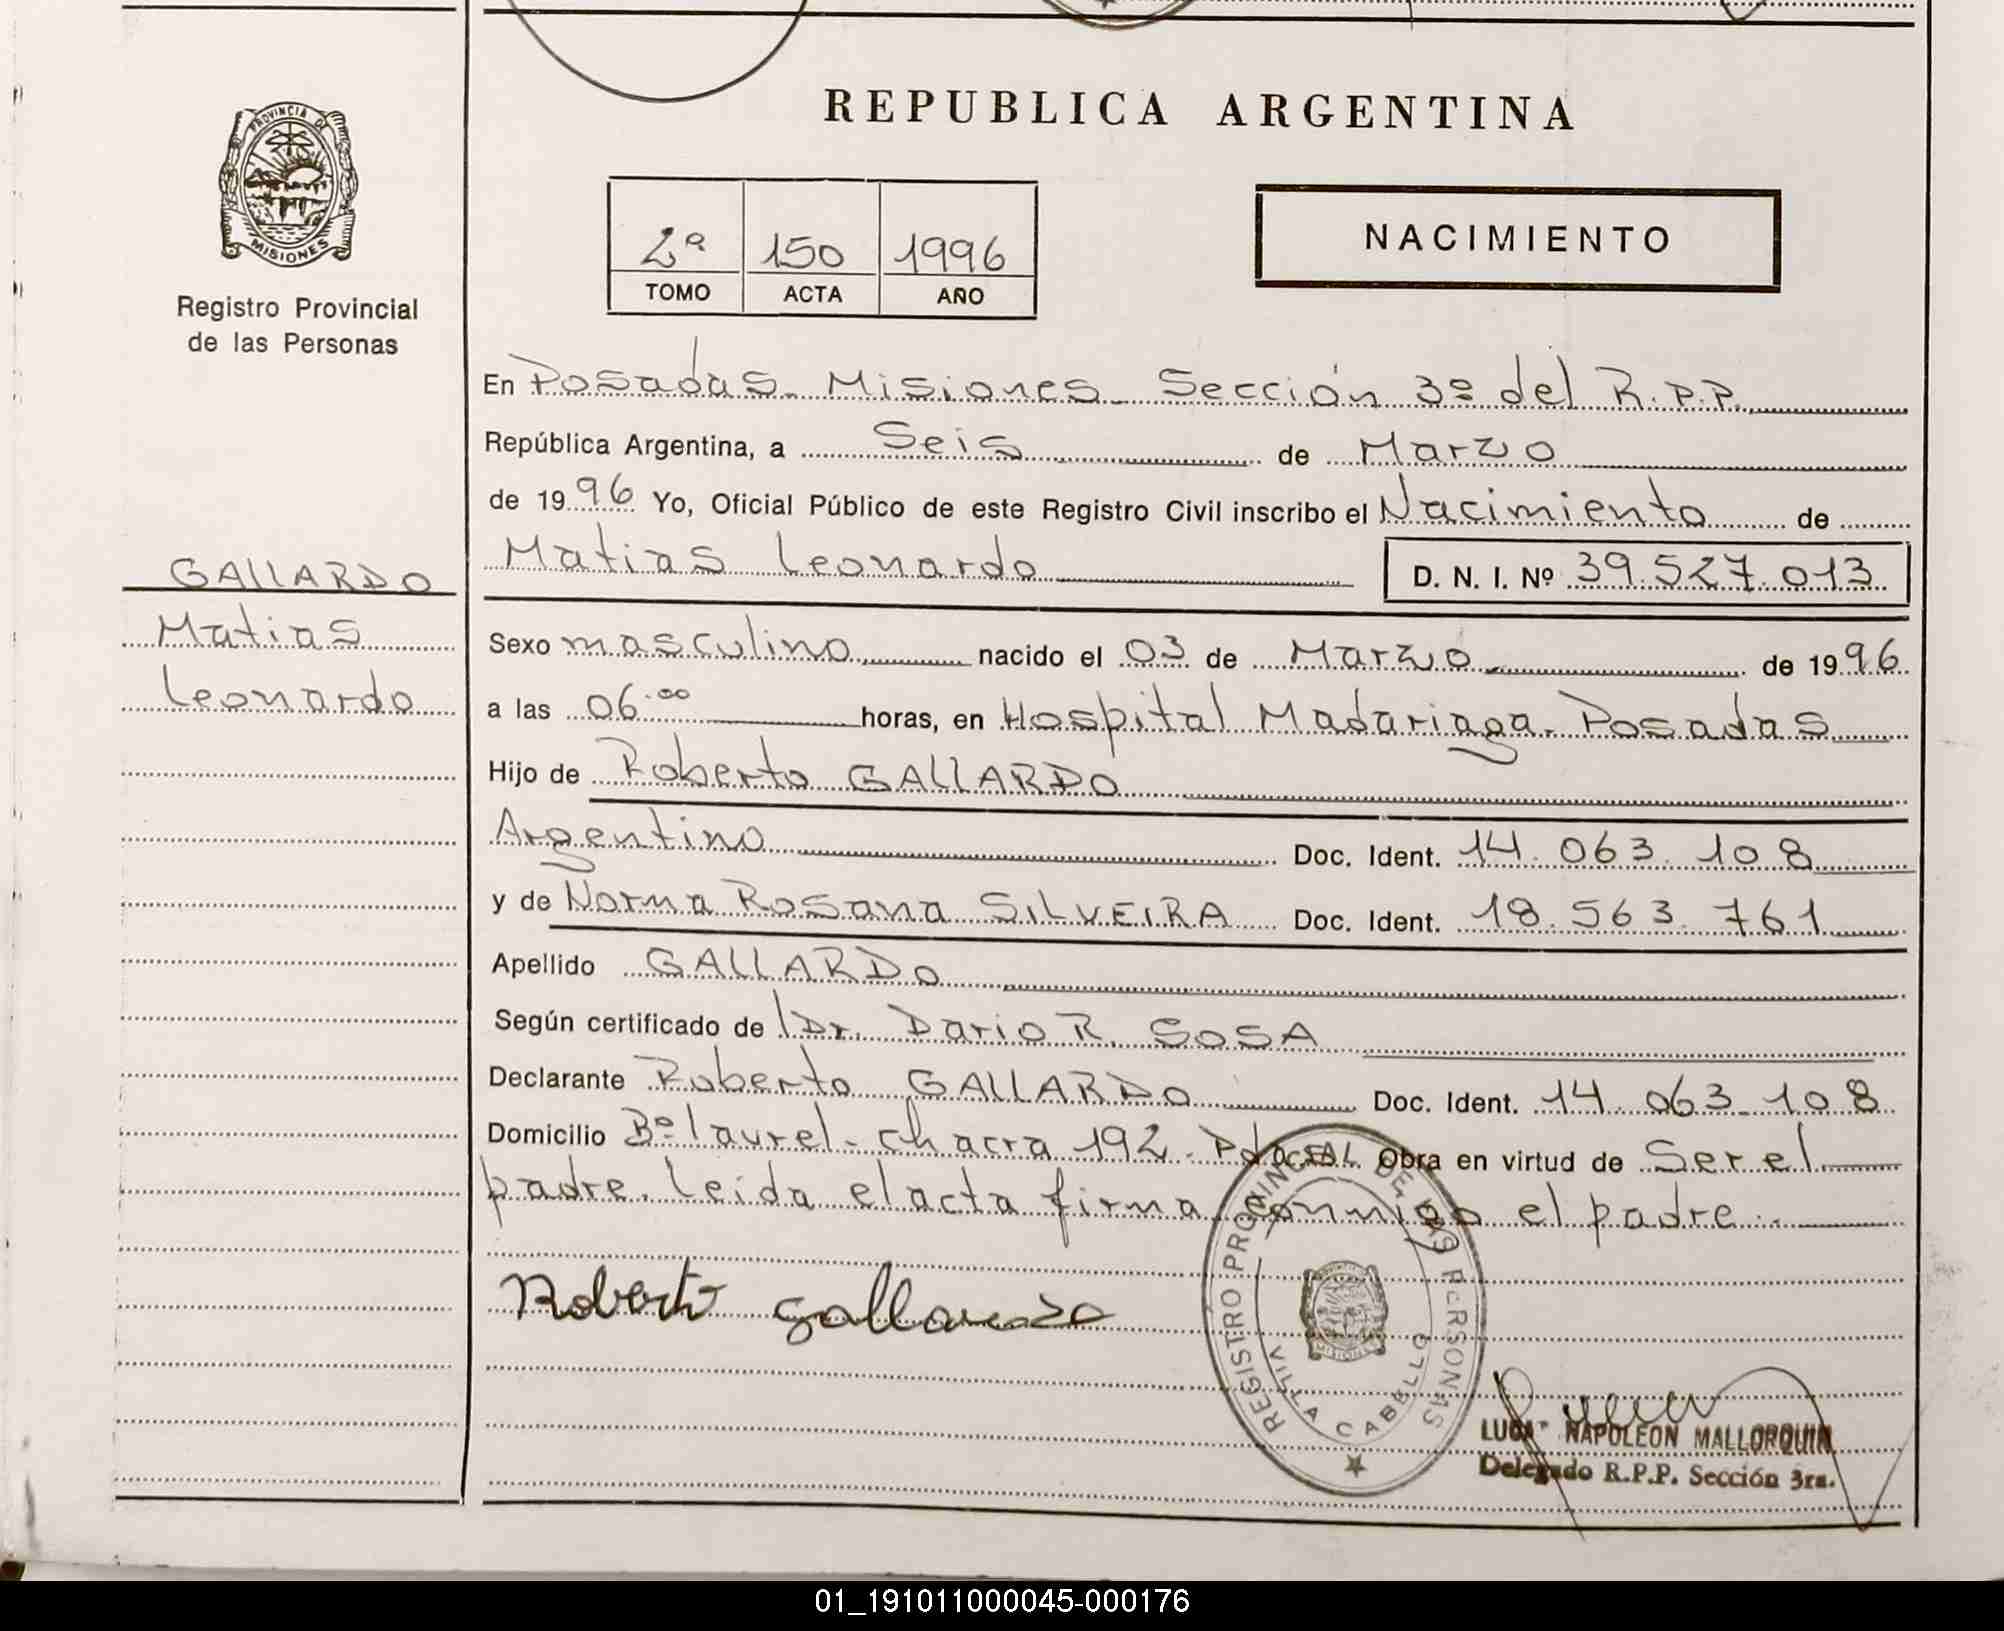 REPUBLICA ARGENTINA
PROVINCIA DE MISIONES
Registro Provincial
de las Personas
2ª 150 1996
TOMO ACTA AÑO
NACIMIENTO
En Posadas - Misiones - Sección 3º del R.P.P.
República Argentina, a Seis de Marzo
de 1996 Yo, Oficial Público de este Registro Civil inscribo el Nacimiento de
Matias Leonardo D. N. I. Nº 39.527.013
GALLARDO
Matias
Leonardo
Sexo masculino nacido el 03 de Marzo de 1996
a las 06.00 horas, en Hospital Madariaga. Posadas
Hijo de Roberto GALLARDO
Argentino Doc. Ident. 14.063.108
y de Norma Rosana SILVEIRA Doc. Ident. 18.563.761
Apellido GALLARDO
Según certificado de l Dr. Dario R. SOSA
Declarante Roberto GALLARDO Doc. Ident. 14.063.108
Domicilio Bº laurel - chacra 192 - Pdas. Obra en virtud de Ser el
padre. Leida el acta firma conmigo el padre.
Roberto Gallardo
REGISTRO PROVINCIAL DE LAS PERSONAS
VILLA CABELLO
MISIONES
NAPOLEON MALLORQUIN
Delegado R.P.P. Sección 3ra.
01_191011000045-000176